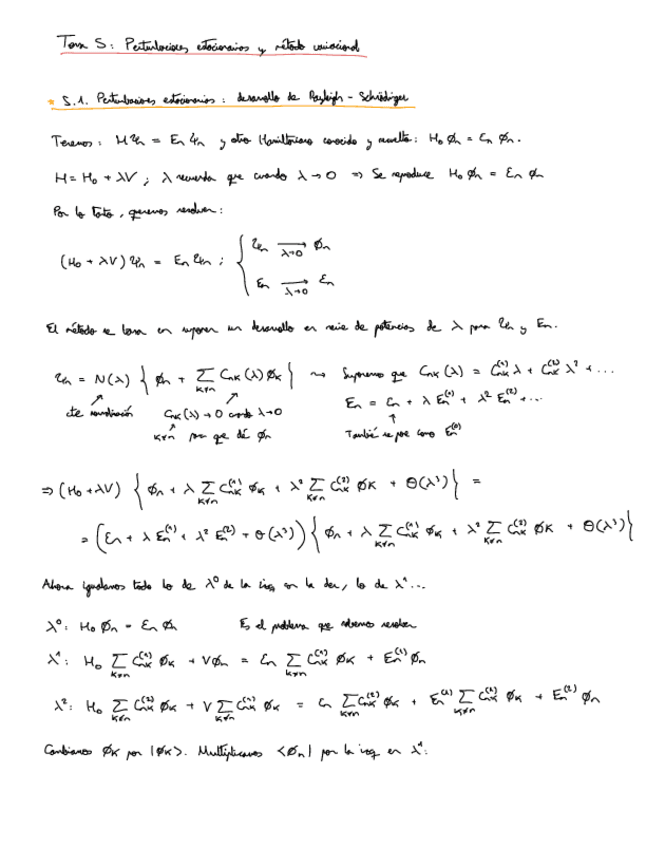 Tema 5: Perturbaciones estacionarias y método variacional
* 5.1. Perturbaciones estacionarias: desarrollo de Rayleigh - Schrödinger
Tenemos: H Ψn = En Ψn y otro Hamiltoniano conocido y resuelto: H₀ φn = εn φn.
H = H₀ + λV ; λ recuerda que cuando λ → 0 ⇒ Se reproduce H₀ φn = εn φn
Por lo tanto, queremos resolver:
(H₀ + λV) Ψn = En Ψn ; { Ψn →(λ→0) φn
En →(λ→0) εn
El método se basa en suponer un desarrollo en serie de potencias de λ para Ψn y En.
Ψn = N(λ) { φn + Σ_{k≠n} Cnk(λ) φk } ⇝ Suponemos que Cnk(λ) = Cnk⁽¹⁾ λ + Cnk⁽²⁾ λ² + ...
En = εn + λ En⁽¹⁾ + λ² En⁽²⁾ + ...
cte normalización Cnk(λ) → 0 cuando λ→0
k≠n para que dé φn
También se pone como En⁽⁰⁾
⇒ (H₀ + λV) { φn + λ Σ_{k≠n} Cnk⁽¹⁾ φk + λ² Σ_{k≠n} Cnk⁽²⁾ φk + Θ(λ³) } =
= (εn + λ En⁽¹⁾ + λ² En⁽²⁾ + Θ(λ³)) { φn + λ Σ_{k≠n} Cnk⁽¹⁾ φk + λ² Σ_{k≠n} Cnk⁽²⁾ φk + Θ(λ³) }
Ahora igualamos todo lo de λ⁰ de la izq con la der, lo de λ¹...
λ⁰: H₀ φn = εn φn Es el problema que sabemos resolver
λ¹: H₀ Σ_{k≠n} Cnk⁽¹⁾ φk + Vφn = εn Σ_{k≠n} Cnk⁽¹⁾ φk + En⁽¹⁾ φn
λ²: H₀ Σ_{k≠n} Cnk⁽²⁾ φk + V Σ_{k≠n} Cnk⁽¹⁾ φk = εn Σ_{k≠n} Cnk⁽²⁾ φk + En⁽¹⁾ Σ_{k≠n} Cnk⁽¹⁾ φk + En⁽²⁾ φn
Cambiamos φk por |φk>. Multiplicamos <φn| por la izq en λ¹: